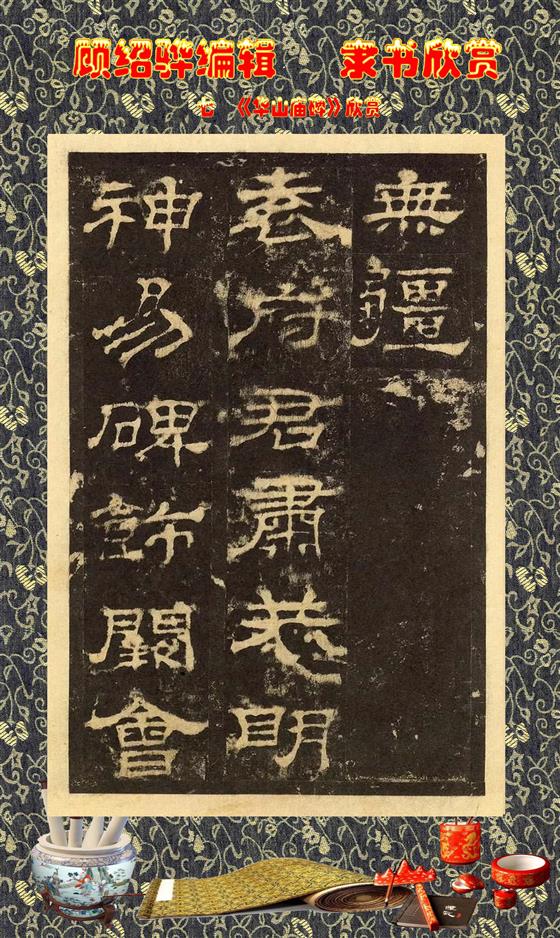 顾绍骅编辑 隶书欣赏
《华山庙碑》欣赏
無疆
袁府君肅恭明
神易碑飾闕會